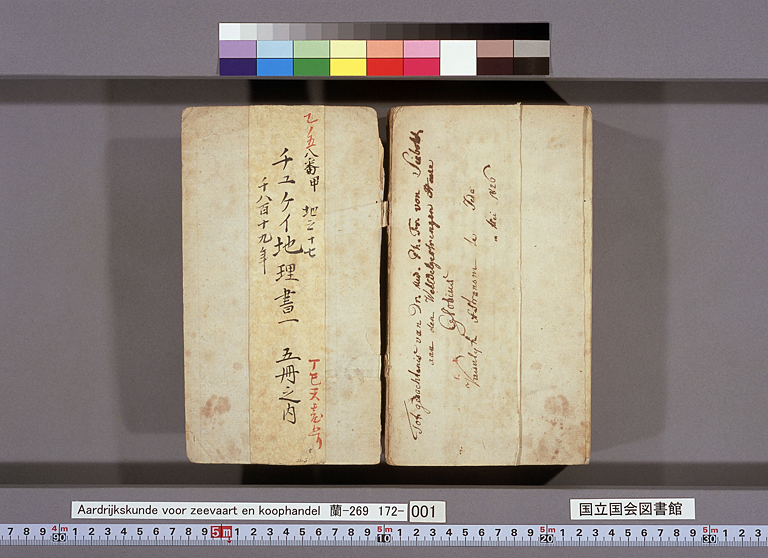 乙ノ五八番甲 地三十七
チュケイ地理書一 五冊之内
千八百十九年
Tot gedachtenis van Dr. Med. Ph. Fr. von Siebold
aan den Weledelgestrengen Heere
Globius
Keiserlyk Astronom te Jedo
Mei 1826
Aardrijkskunde voor zeevaart en koophandel 蘭-269 172- 001
国立国会図書館
7 8 9 4m 90 1 2 3 4 5 6 7 8 9 5m 1 2 3 4 5 6 7 8 9 5m 10 1 2 3 4 5 6 7 8 9 5m 20 1 2 3 4 5 6 7 8 9 5m 30 1 2 3